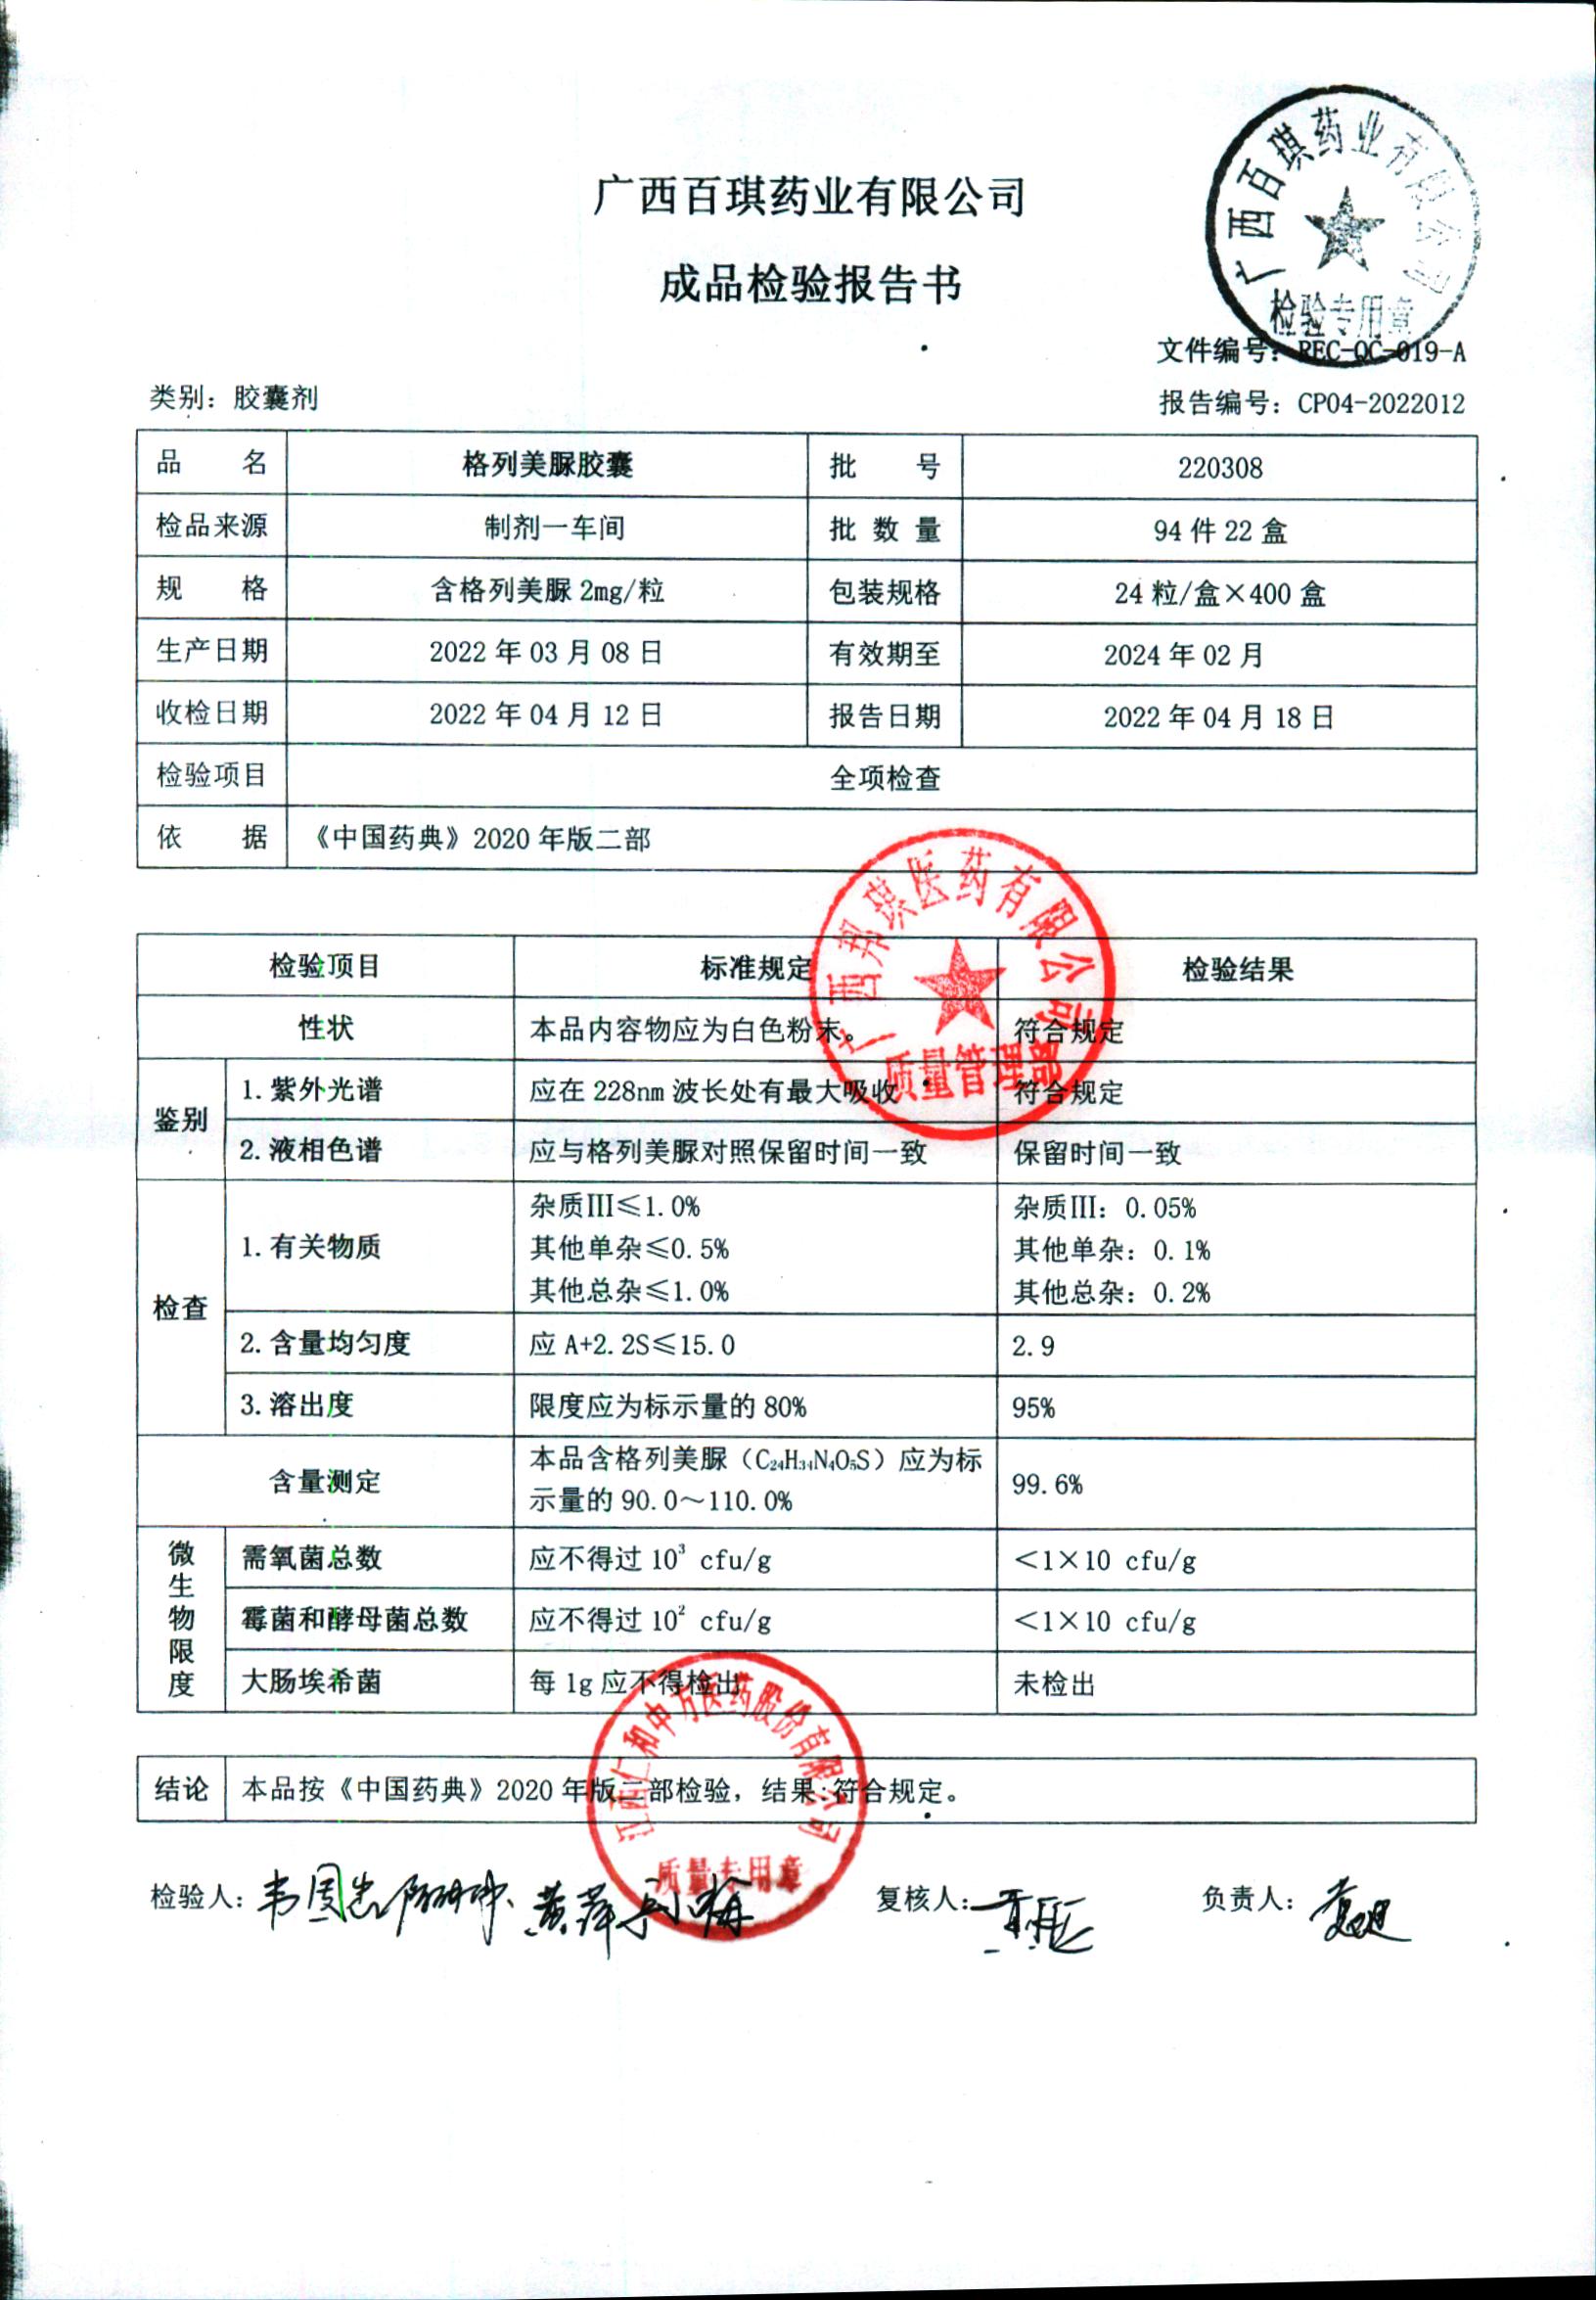 广西百琪药业有限公司
成品检验报告书
广西百琪药业有限公司
检验专用章
文件编号：REC-QC-019-A
类别：胶囊剂
报告编号：CP04-2022012
品 名 格列美脲胶囊 批 号 220308
检品来源 制剂一车间 批 数 量 94 件 22 盒
规 格 含格列美脲 2mg/粒 包装规格 24 粒/盒×400 盒
生产日期 2022 年 03 月 08 日 有效期至 2024 年 02 月
收检日期 2022 年 04 月 12 日 报告日期 2022 年 04 月 18 日
检验项目 全项检查
依 据 《中国药典》2020 年版二部
广西邦琪医药有限公司
质量管理部
检验项目 标准规定 检验结果
性状 本品内容物应为白色粉末。 符合规定
鉴别
1.紫外光谱 应在 228nm 波长处有最大吸收 符合规定
2.液相色谱 应与格列美脲对照保留时间一致 保留时间一致
检查
1.有关物质
杂质III≤1.0% 杂质III：0.05%
其他单杂≤0.5% 其他单杂：0.1%
其他总杂≤1.0% 其他总杂：0.2%
2.含量均匀度 应 A+2.2S≤15.0 2.9
3.溶出度 限度应为标示量的 80% 95%
含量测定 本品含格列美脲（C₂₄H₃₄N₄O₅S）应为标
示量的 90.0～110.0% 99.6%
微生物限度
需氧菌总数 应不得过 10³ cfu/g ＜1×10 cfu/g
霉菌和酵母菌总数 应不得过 10² cfu/g ＜1×10 cfu/g
大肠埃希菌 每 1g 应不得检出 未检出
江西仁和中方医药股份有限公司
质量专用章
结论 本品按《中国药典》2020 年版二部检验，结果：符合规定。
检验人： 复核人： 负责人：